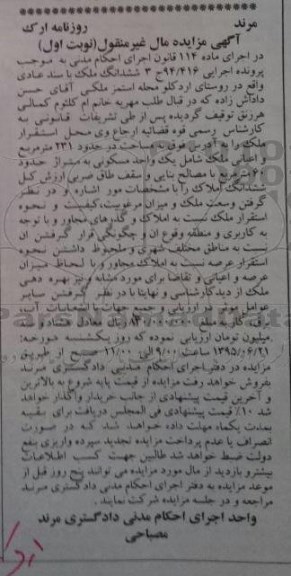 مرند روزنامه ارک
آگهی مزایده مال غیرمنقول(نوبت اول)
در اجرای ماده ۱۱۴ قانون اجرای احکام مدنی به موجب
پرونده اجرایی ۹۴/۴۱۶ح ۳ ششدانگ ملک با سند عادی
واقع در روستای اردکلو محله استمز ملکی آقای حسن
داداش زاده که در قبال طلب مهریه خانم ام کلثوم کمالی
هرزنق توقیف گردیده پس از طی تشریفات قانونی به
کارشناس رسمی قوه قضائیه ارجاع وی محل استقرار
ملک را به آدرس فوق به مساحت در حدود ۲۳۱ مترمربع
و اعیانی ملک شامل یک واحد مسکونی به متراژ حدود
۶۶ مترمربع با مصالح بنایی و سقف طاق ضربی ارزش کل
ششدانگ املاک را با مشخصات مور اشاره و در نظر
گرفتن وسعت ملک و میزان مرغوبیت، کیفیت و نحوه
استقرار ملک نسبت به املاک و گذرهای مجاور و با توجه
به کاربری و منطقه وقوع آن و چگونگی قرار گرفتن آن
نسبت به مناطق مختلف شهری و ملحوظ داشتن نحوه
استقرار عرصه نسبت به املاک مجاور و با لحاظ میزان
عرصه و اعیانی و تقاضا برای مورد مشابه و نیز بهره دهی
ملک از دید کارشناسی و نهایتا با در نظر گرفتن سایر
عوامل موثر در ارزیابی و جمع جهات با انشعابات آب،
برق، گاز به مبلغ ریال معادل هشتاد و
میلیون تومان ارزیابی نموده که روز یکشنبه مورخه:
۱۳۹۵/۰۶/۲۱ ساعت ۹/۰۰ الی ۱۱/۰۰ صبح از طریق
مزایده در دفتر اجرای احکام مدنی دادگستری مرند
بفروش خواهد رفت مزایده از قیمت پایه شروع به بالاترین
و آخرین قیمت پیشنهادی از جانب خریدار واگذار خواهد
شد ۱۰٪ قیمت پیشنهادی فی المجلس دریافت برای بقیه
بمدت یکماه مهلت داده خواهد شد که در صورت
انصراف یا عدم پرداخت مزایده تجدید سپرده واریزی بنفع
دولت ضبط خواهد شد طالبین جهت کسب اطلاعات
بیشتر و بازدید از مال مورد مزایده می توانند پنج روز قبل از
موعد مزایده به دفتر اجرای احکام مدنی دادگستری مرند
مراجعه و در جلسه مزایده شرکت نمایند .
واحد اجرای احکام مدنی دادگستری مرند
مصباحی